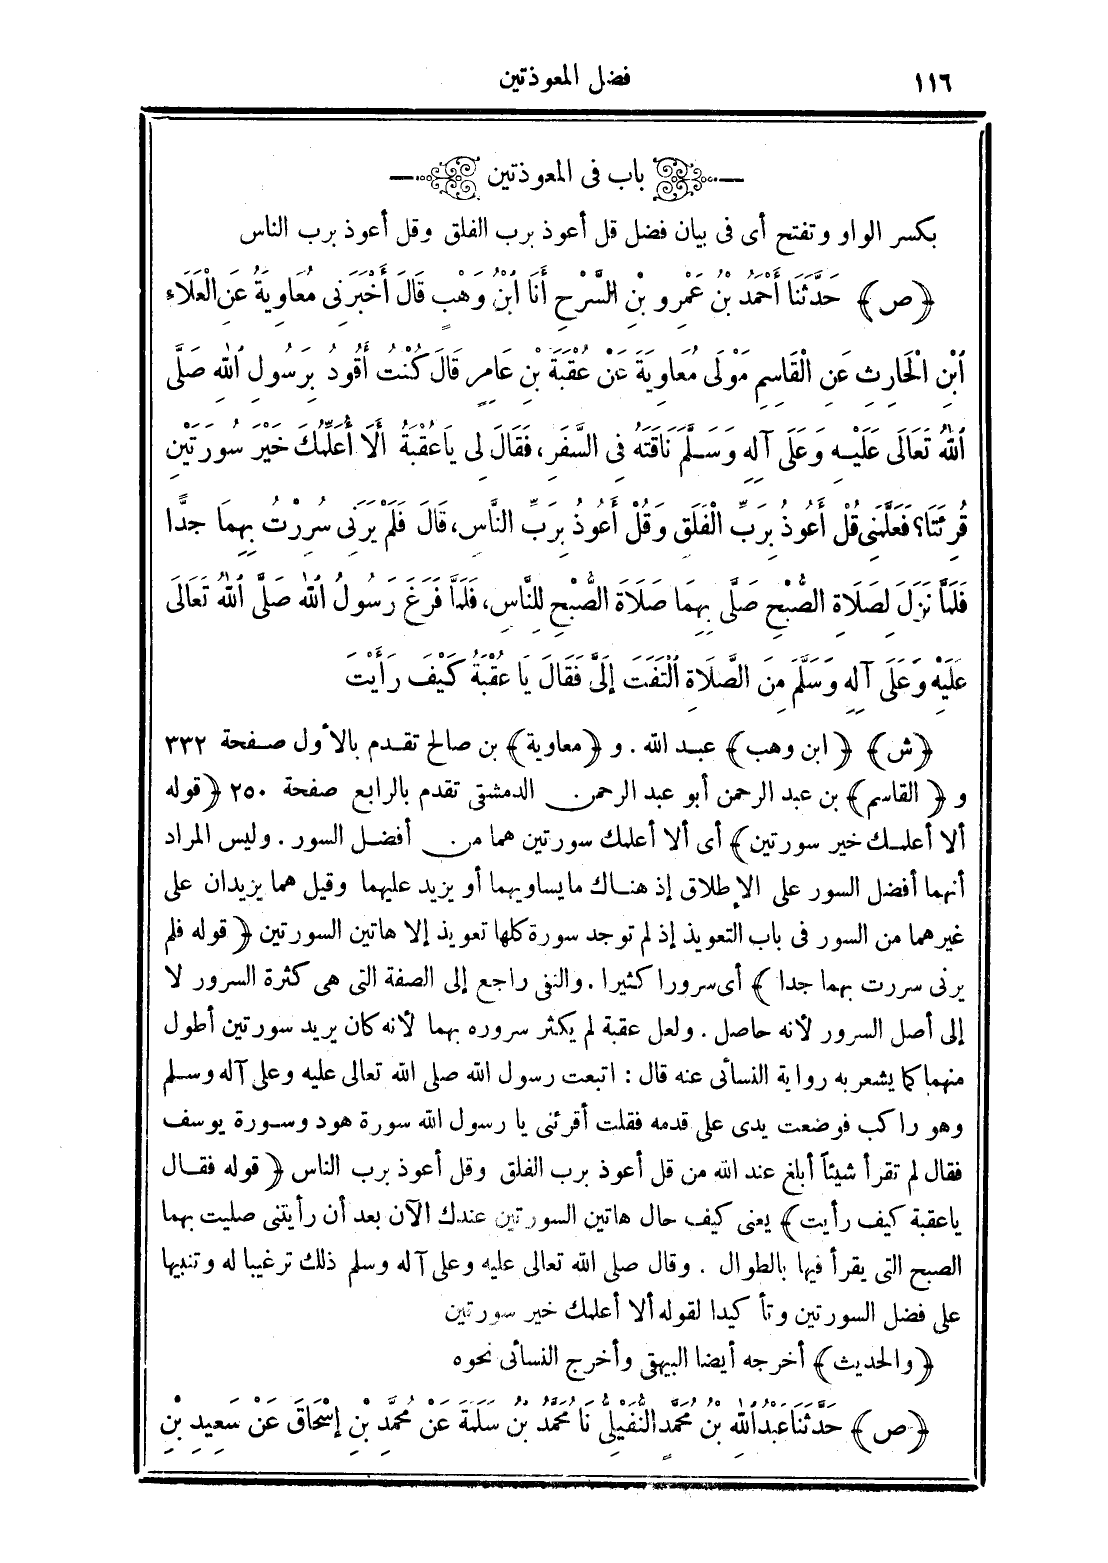 ١١٦
فضل المعوذتين
باب فى المعوذتين
بكسر الواو وتفتح أى فى بيان فضل قل أعوذ برب الفلق وقل أعوذ برب الناس
﴿ص﴾ حَدَّثَنَا أَحْمَدُ بْنُ عَمْرِو بْنِ السَّرْحِ أَنَا ابْنُ وَهْبٍ قَالَ أَخْبَرَنِى مُعَاوِيَةُ عَنِ الْعَلَاءِ
ابْنِ الْحَارِثِ عَنِ الْقَاسِمِ مَوْلَى مُعَاوِيَةَ عَنْ عُقْبَةَ بْنِ عَامِرٍ قَالَ كُنْتُ أَقُودُ بِرَسُولِ اللهِ صَلَّى
اللهُ تَعَالَى عَلَيْهِ وَعَلَى آلِهِ وَسَلَّمَ نَاقَتَهُ فِى السَّفَرِ، فَقَالَ لِى يَاعُقْبَةُ أَلَا أُعَلِّمُكَ خَيْرَ سُورَتَيْنِ
قُرِئَتَا؟ فَعَلَّمَنِى قُلْ أَعُوذُ بِرَبِّ الْفَلَقِ وَقُلْ أَعُوذُ بِرَبِّ النَّاسِ، قَالَ فَلَمْ يَرَنِى سُرِرْتُ بِهِمَا جِدًّا
فَلَمَّا نَزَلَ لِصَلَاةِ الصُّبْحِ صَلَّى بِهِمَا صَلَاةَ الصُّبْحِ لِلنَّاسِ، فَلَمَّا فَرَغَ رَسُولُ اللهِ صَلَّى اللهُ تَعَالَى
عَلَيْهِ وَعَلَى آلِهِ وَسَلَّمَ مِنَ الصَّلَاةِ الْتَفَتَ إِلَىَّ فَقَالَ يَا عُقْبَةُ كَيْفَ رَأَيْتَ
﴿ش﴾ ﴿ابن وهب﴾ عبد الله . و ﴿معاوية﴾ بن صالح تقدم بالأول صفحة ٣٣٢
و ﴿القاسم﴾ بن عبد الرحمن أبو عبد الرحمن الدمشقى تقدم بالرابع صفحة ٢٥٠ ﴿قوله
ألا أعلمك خير سورتين﴾ أى ألا أعلمك سورتين هما من أفضل السور . وليس المراد
أنهما أفضل السور على الإطلاق إذ هناك ما يساويهما أو يزيد عليهما وقيل هما يزيدان على
غيرهما من السور فى باب التعويذ إذ لم توجد سورة كلها تعويذ إلا هاتين السورتين ﴿قوله فلم
يرنى سررت بهما جدا﴾ أى سرورا كثيرا . والنفى راجع إلى الصفة التى هى كثرة السرور لا
إلى أصل السرور لأنه حاصل . ولعل عقبة لم يكثر سروره بهما لأنه كان يريد سورتين أطول
منهما كما يشعر به رواية النسائى عنه قال : اتبعت رسول الله صلى الله تعالى عليه وعلى آله وسلم
وهو راكب فوضعت يدى على قدمه فقلت أقرئنى يا رسول الله سورة هود وسورة يوسف
فقال لم تقرأ شيئاً أبلغ عند الله من قل أعوذ برب الفلق وقل أعوذ برب الناس ﴿قوله فقال
ياعقبة كيف رأيت﴾ يعنى كيف حال هاتين السورتين عندك الآن بعد أن رأيتنى صليت بهما
الصبح التى يقرأ فيها بالطوال . وقال صلى الله تعالى عليه وعلى آله وسلم ذلك ترغيبا له وتنبيها
على فضل السورتين وتأكيدا لقوله ألا أعلمك خير سورتين
﴿والحديث﴾ أخرجه أيضا البيهقى وأخرج النسائى نحوه
﴿ص﴾ حَدَّثَنَا عَبْدُ اللهِ بْنُ مُحَمَّدٍ النُّفَيْلِىُّ نَا مُحَمَّدُ بْنُ سَلَمَةَ عَنْ مُحَمَّدِ بْنِ إِسْحَاقَ عَنْ سَعِيدِ بْنِ